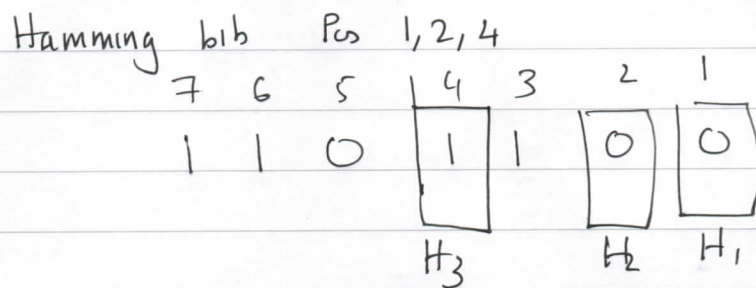 Hamming bib Pos 1,2,4
7 6 5 4 3 2 1
1 1 0 1 1 0 0
H3 H2 H1